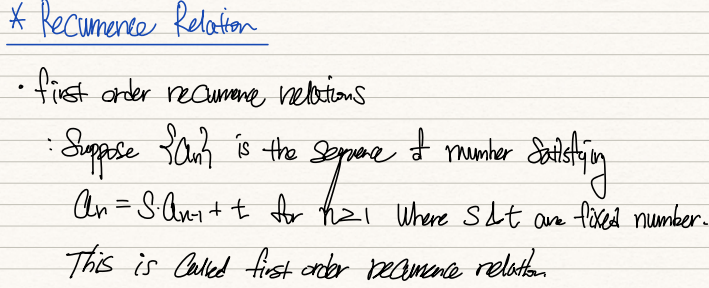 * Recurrence Relation
· first order recurrence relations
: Suppose {an} is the sequence of number satisfying
an = S·an-1 + t for n≥1 where s & t are fixed number.
This is called first order recurrence relation